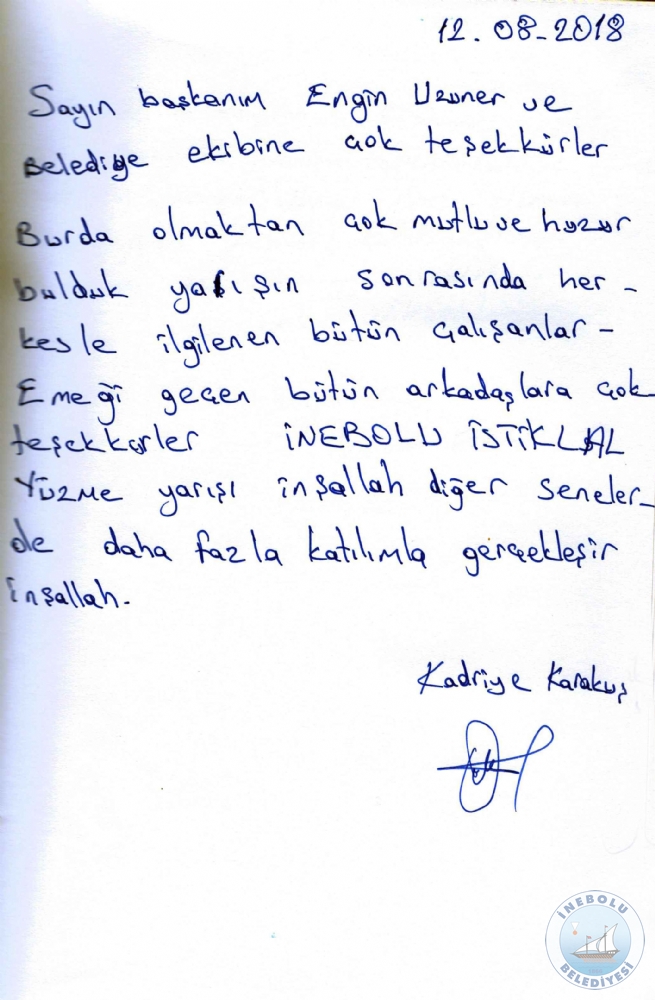 12.08-2018
Sayın başkanım Engin Uzuner ve
Belediye ekibine çok teşekkürler
Burda olmaktan çok mutlu ve huzur
bulduk yarışın sonrasında her-
kesle ilgilenen bütün çalışanlar-
Emeği geçen bütün arkadaşlara çok
teşekkürler İNEBOLU İSTİKLAL
Yüzme yarışı inşallah diğer seneler-
de daha fazla katılımla gerçekleşir
inşallah.
Kadriye Karakuş
İNEBOLU
BELEDİYESİ